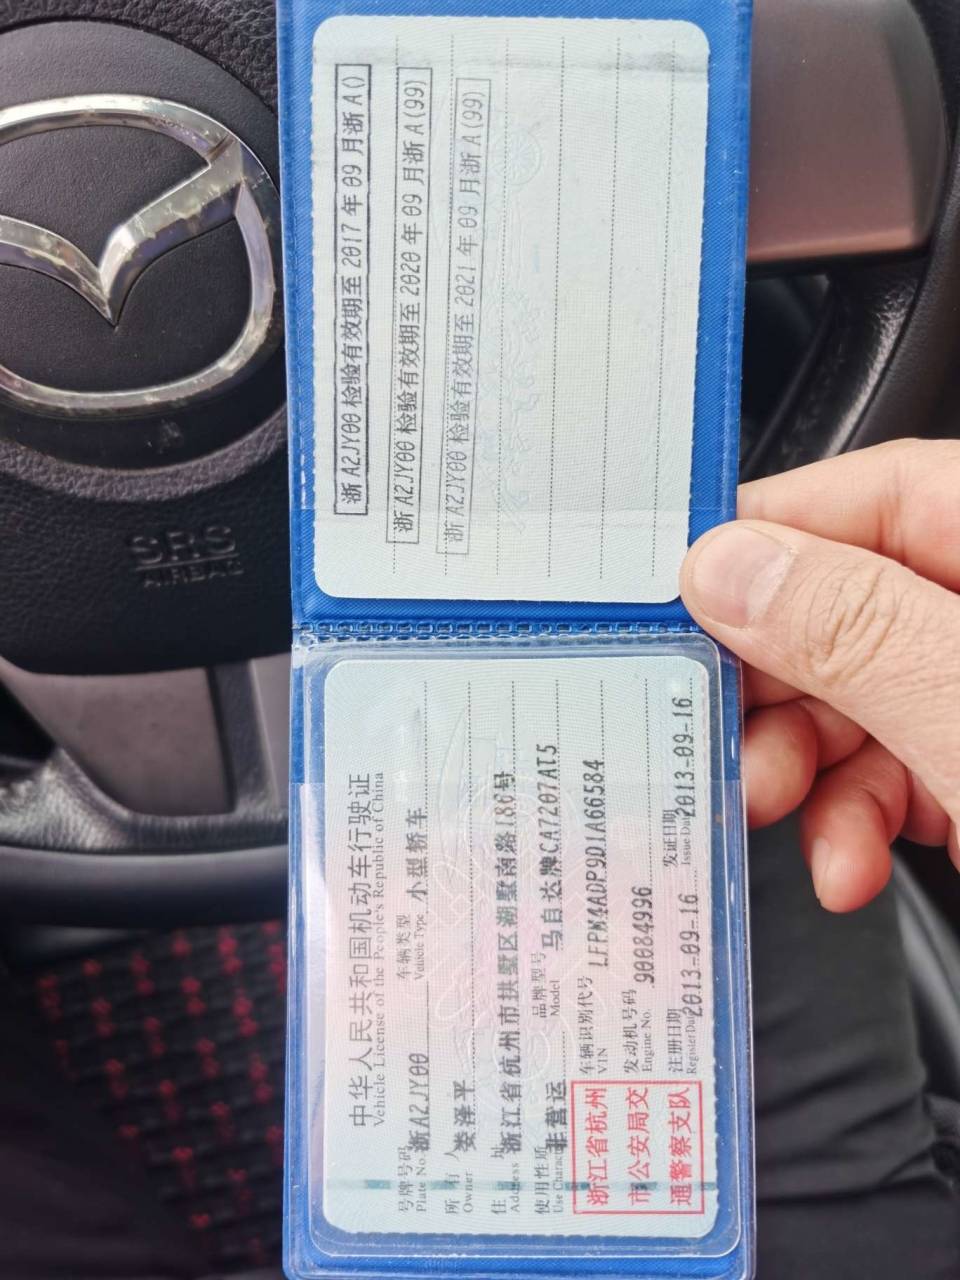 浙A2JY00检验有效期至2017年09月浙A()
浙A2JY00检验有效期至2020年09月浙A(99)
浙A2JY00检验有效期至2021年09月浙A(99)
SRS
AIRBAG
中华人民共和国机动车行驶证
Vehicle License of the People's Republic of China
号牌号码 浙A2JY00 车辆类型 小型轿车
Plate No. Vehicle Type
所有人 娄泽平
Owner
住址 浙江省杭州市拱墅区湖墅南路186号
Address
使用性质 非营运 品牌型号 马自达牌CA7207AT5
Use Character Model
浙江省杭州
市公安局交
通警察支队
车辆识别代号 LFPM4ADP9D1A66584
VIN
发动机号码 90084996
Engine No.
注册日期 2013-09-16 发证日期 2013-09-16
Register Date Issue Date